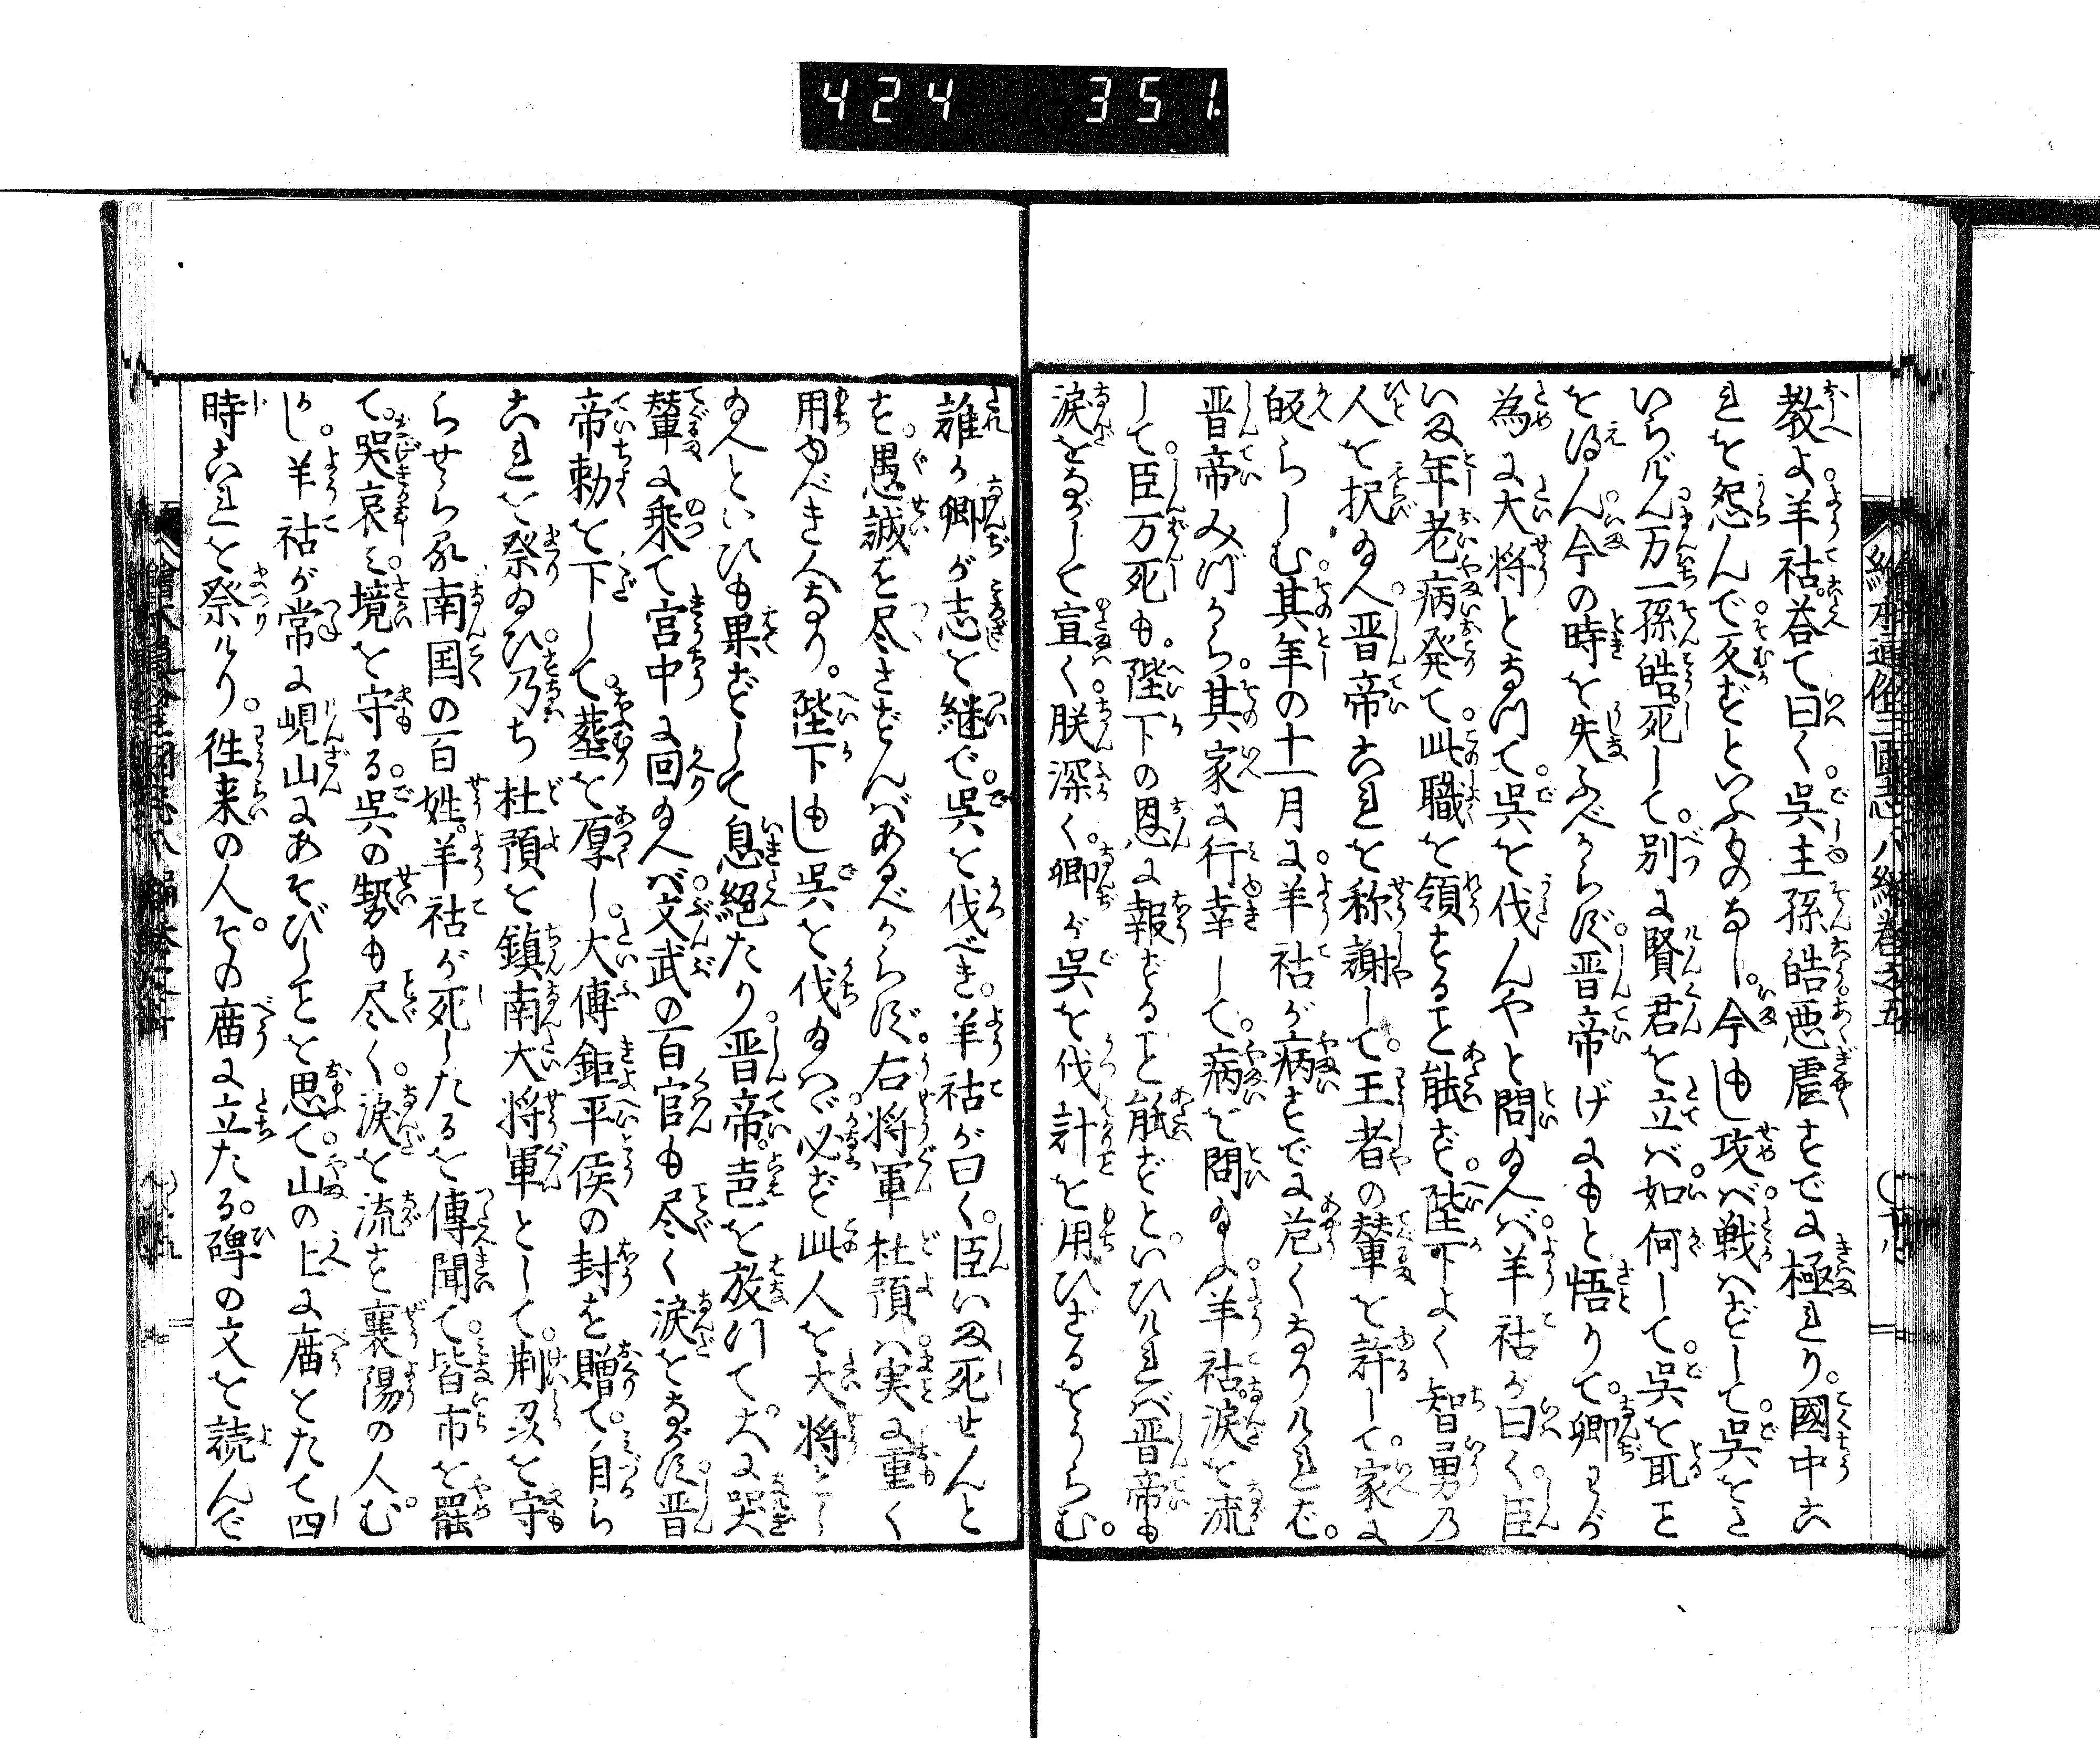 424 351.
教よ羊祜荅て曰く呉主孫皓悪虐すでに極れり。國中こ
れを怨んで反ずといふものなし。今もし攻ば戦はずして呉をと
いらずん万一孫皓死して。別に賢君を立ば如何して呉を取こと
を得ん今の時を失ふべからず晋帝げにもと悟りて。卿わが
為に大将となつて呉を伐んやと問ゐへば羊祜が曰く臣
いま年老病発て此職を領すること能ず陛下よく智勇の
人を択ゐへ晋帝これを称謝して。王者の輦を許して家に
皈らしむ其年の十一月に羊祜が病すでに危くなりければ。
晋帝みづから其家に行幸して。病を問ゐふ羊祜涙を流
して臣万死も陛下の恩に報ずること能ずといひければ晋帝も
涙をながして宣く朕深く。卿が呉を伐計を用ひざるをうらむ。
誰か卿が志を継で。呉を伐べき。羊祜が曰く。臣いま死せんと
す。愚誠を尽さずんばあるべからず。右将軍杜預は実に重く
用ゆべき人なり。陛下もし呉を伐ゐはゞ必ず此人を大将とし
ゐへといひも果ずして息絶たり。晋帝声を放つて。大に哭
輦に乗て宮中に回ゐへば文武の百官も尽く涙をながす晋
帝勅を下して。葬を厚し。大傅鉅平侯の封を贈て。自ら
これを祭ゐひ乃ち杜預を鎮南大将軍として荊州を守
らせらる南国の百姓。羊祜が死したるを傳聞て。皆市を罷
て。哭哀み境を守る呉の勢も尽く。涙を流す襄陽の人。む
かし。羊祜が常に峴山にあそびしことを思て山の上に庿をたて四
時これを祭けり。徃来の人。その庿に立たる。碑の文を読んで